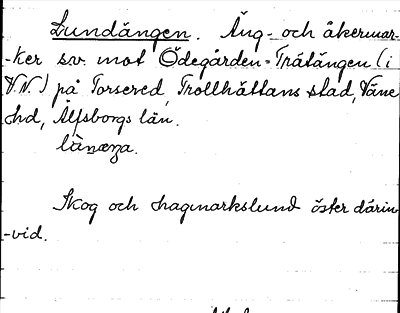 Lundängen. Äng- och åkermar-
-ker s.v. mot Ödegården-Tråtängen (i
V.N.) på Torsered, Trollhättans stad, Väne
hd, Älfsborgs län.
Skog och hagmarkslund öster därin-
-vid.